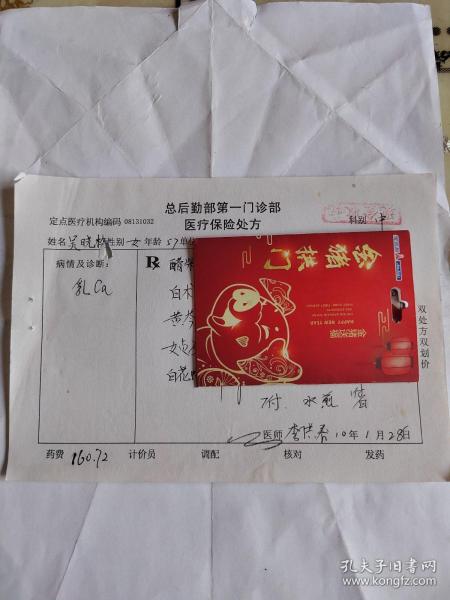 总后勤部第一门诊部
定点医疗机构编码 08131032
医疗保险处方
科别 中
姓名 性别 女 年龄 57 单位
病情及诊断:
乳Ca
R
醋柴
白术
黄芩
女贞
白花
金猪拱门
金猪送福
HAPPY NEW YEAR
双处方双划价
付 水煎
医师 10年1月28日
药费 160.72 计价员 调配 核对 发药
孔夫子旧书网
www.kongfz.com